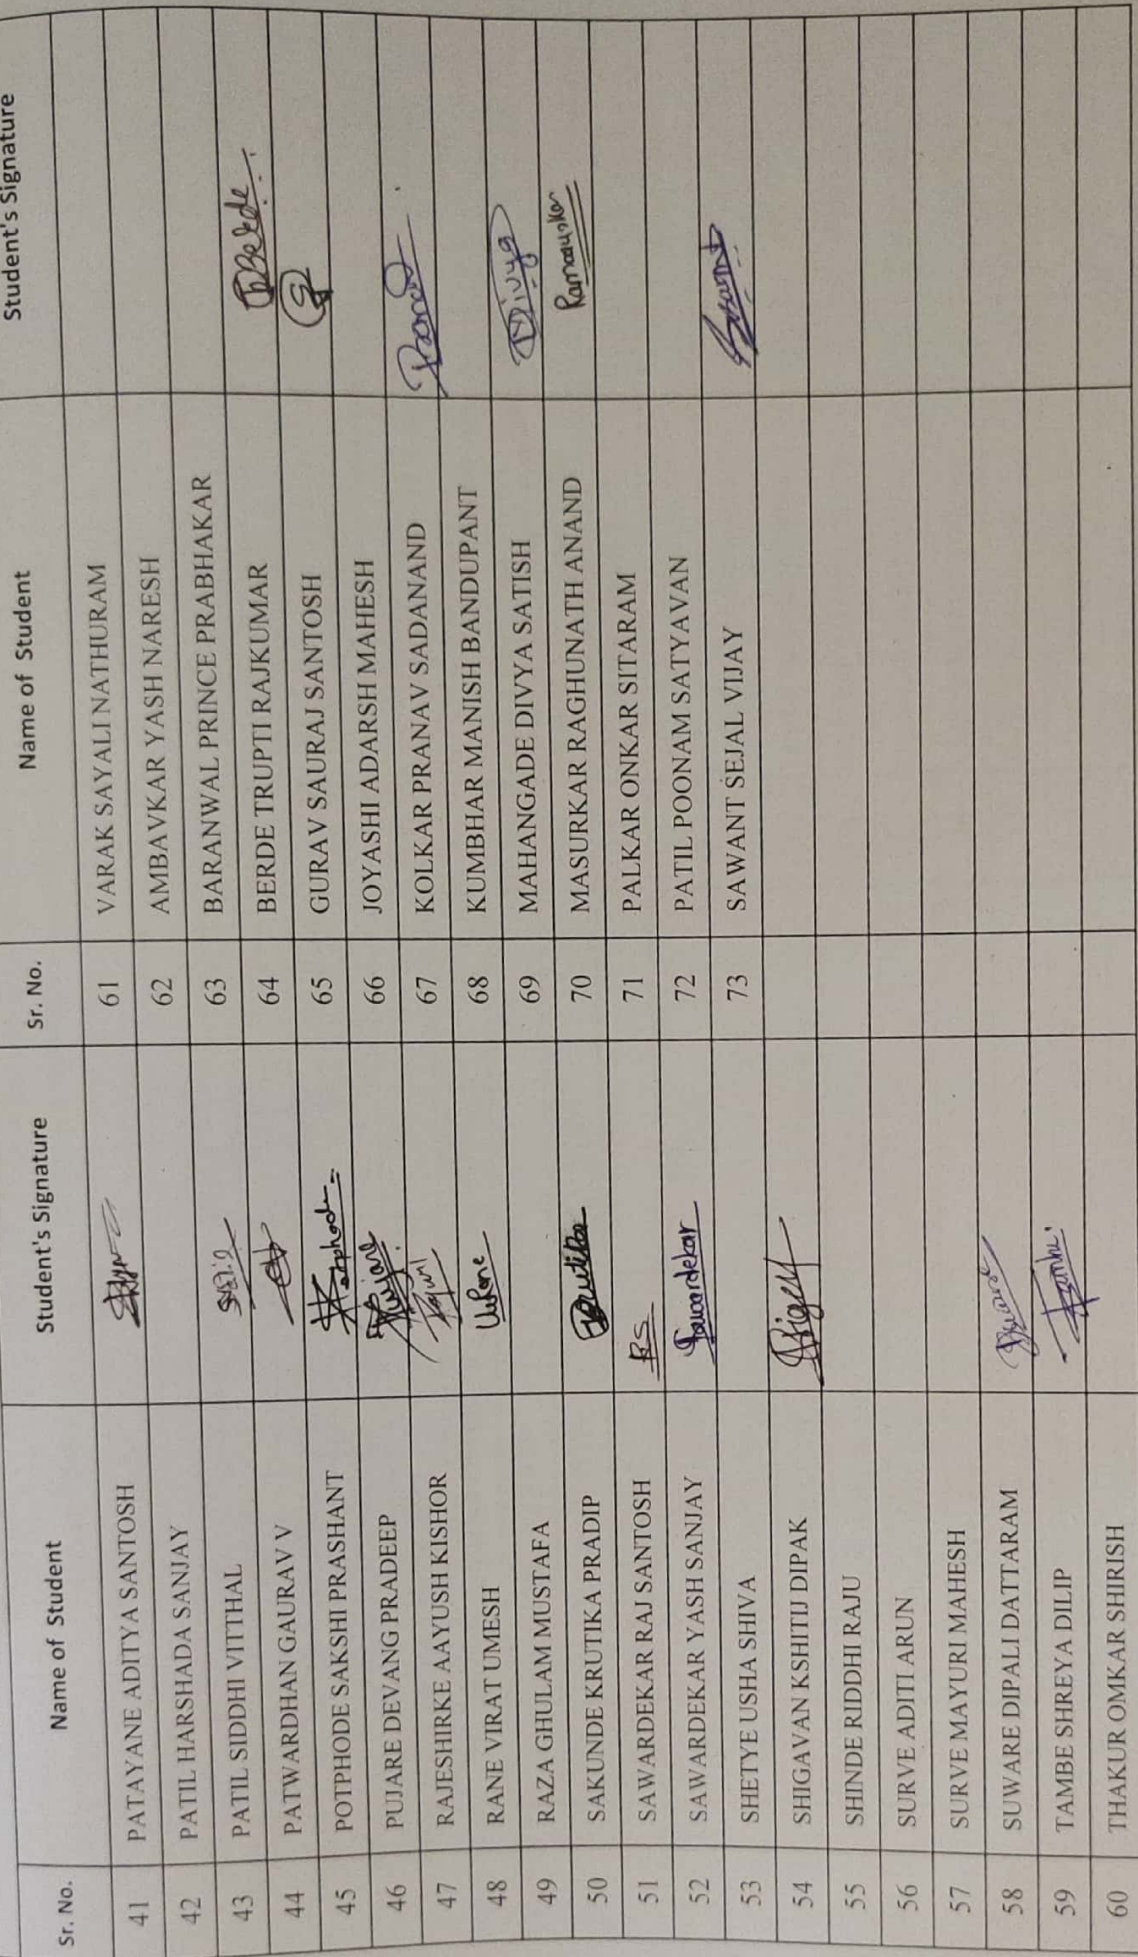 Sr. No. Name of Student Student's Signature Sr. No. Name of Student Student's Signature
41 PATAYANE ADITYA SANTOSH 61 VARAK SAYALI NATHURAM
42 PATIL HARSHADA SANJAY 62 AMBAVKAR YASH NARESH
43 PATIL SIDDHI VITTHAL 63 BARANWAL PRINCE PRABHAKAR
44 PATWARDHAN GAURAV V 64 BERDE TRUPTI RAJKUMAR TBerde
45 POTPHODE SAKSHI PRASHANT 65 GURAV SAURAJ SANTOSH
46 PUJARE DEVANG PRADEEP Pujare 66 JOYASHI ADARSH MAHESH
47 RAJESHIRKE AAYUSH KISHOR 67 KOLKAR PRANAV SADANAND
48 RANE VIRAT UMESH URane 68 KUMBHAR MANISH BANDUPANT
49 RAZA GHULAM MUSTAFA 69 MAHANGADE DIVYA SATISH Divya
50 SAKUNDE KRUTIKA PRADIP Krutika 70 MASURKAR RAGHUNATH ANAND
51 SAWARDEKAR RAJ SANTOSH RS 71 PALKAR ONKAR SITARAM
52 SAWARDEKAR YASH SANJAY Sawardekar 72 PATIL POONAM SATYAVAN
53 SHETYE USHA SHIVA 73 SAWANT SEJAL VIJAY
54 SHIGAVAN KSHITIJ DIPAK
55 SHINDE RIDDHI RAJU
56 SURVE ADITI ARUN
57 SURVE MAYURI MAHESH
58 SUWARE DIPALI DATTARAM
59 TAMBE SHREYA DILIP
60 THAKUR OMKAR SHIRISH